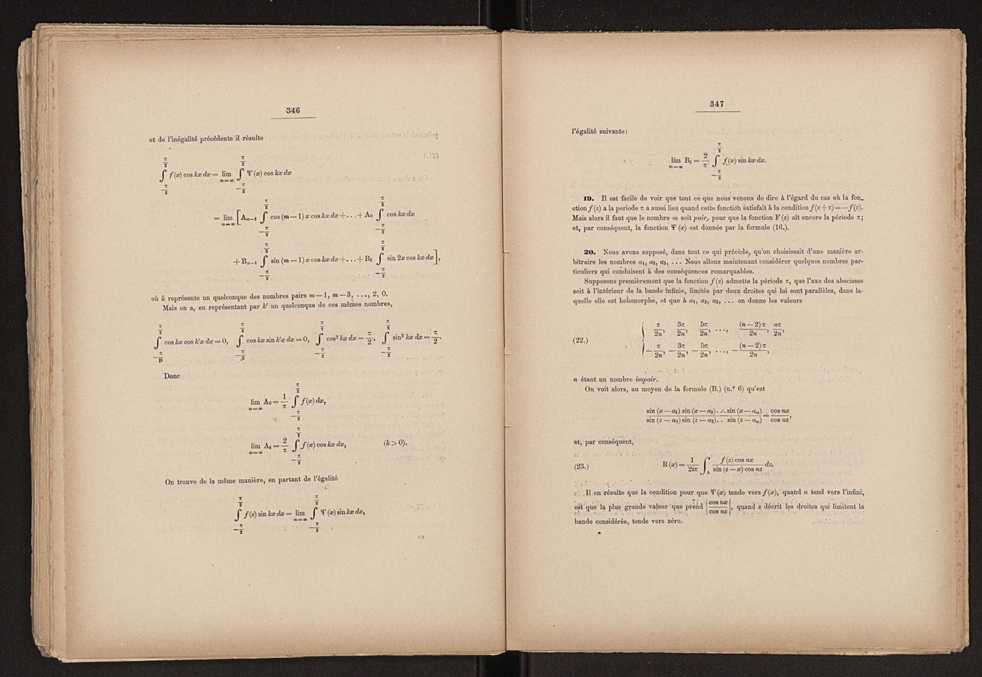 346
et de l'inégalité précédente il résulte
∫_{-π/2}^{π/2} f(x) cos kx dx = lim_{n=∞} ∫_{-π/2}^{π/2} Ψ(x) cos kx dx
= lim_{n=∞} [A_{m-1} ∫_{-π/2}^{π/2} cos (m-1) x cos kx dx + . . . + A_0 ∫_{-π/2}^{π/2} cos kx dx
+ B_{m-1} ∫_{-π/2}^{π/2} sin (m-1) x cos kx dx + . . . + B_2 ∫_{-π/2}^{π/2} sin 2x cos kx dx],
où k représente un quelconque des nombres pairs m-1, m-3, . . ., 2, 0.
Mais on a, en représentant par k' un quelconque de ces mêmes nombres,
∫_{-π/2}^{π/2} cos kx cos k'x dx = 0, ∫_{-π/2}^{π/2} cos kx sin k'x dx = 0, ∫_{-π/2}^{π/2} cos² kx dx = π/2, ∫_{-π/2}^{π/2} sin² kx dx = π/2.
Donc
lim_{n=∞} A_0 = 1/π ∫_{-π/2}^{π/2} f(x) dx,
lim_{n=∞} A_k = 2/π ∫_{-π/2}^{π/2} f(x) cos kx dx, (k > 0).
On trouve de la même manière, en partant de l'égalité
∫_{-π/2}^{π/2} f(x) sin kx dx = lim_{n=∞} ∫_{-π/2}^{π/2} Ψ(x) sin kx dx,
347
l'égalité suivante:
lim_{n=∞} B_k = 2/π ∫_{-π/2}^{π/2} f(x) sin kx dx.
19. Il est facile de voir que tout ce que nous venons de dire à l'égard du cas où la fon-
ction f(z) a la periode π a aussi lieu quand cette fonction satisfait à la condition f(z+π) = -f(z).
Mais alors il faut que le nombre m soit pair, pour que la fonction F(z) ait encore la période π;
et, par conséquent, la fonction Ψ(x) est donnée par la formule (16.).
20. Nous avons supposé, dans tout ce qui précède, qu'on choisissait d'une manière ar-
bitraire les nombres a_1, a_2, a_3, . . . Nous allons maintenant considérer quelques nombres par-
ticuliers qui conduisent à des conséquences remarquables.
Supposons premièrement que la function f(z) admette la période π, que l'axe des abscisses
soit à l'intérieur de la bande infinie, limitée par deux droites qui lui sont parallèles, dans la-
quelle elle est holomorphe, et que à a_1, a_2, a_3, . . . on donne les valeurs
(22.) { π/2n, 3π/2n, 5π/2n, . . ., (n-2)π/2n, nπ/2n,
-π/2n, -3π/2n, -5π/2n, . . ., -(n-2)π/2n,
n étant un nombre impair.
On voit alors, au moyen de la formule (B.) (n.º 6) qu'est
sin (x-a_1) sin (x-a_2) . . . sin (x-a_n) / sin (z-a_1) sin (z-a_2) . . . sin (z-a_n) = cos nx / cos nz,
et, par conséquent,
(23.) R(x) = 1/2iπ ∫_s f(z) cos nx / sin (z-x) cos nz dz.
Il en résulte que la condition pour que Ψ(x) tende vers f(x), quand n tend vers l'infini,
est que la plus grande valeur que prend |cos nx / cos nz|, quand z décrit les droites qui limitent la
bande considérée, tende vers zéro.